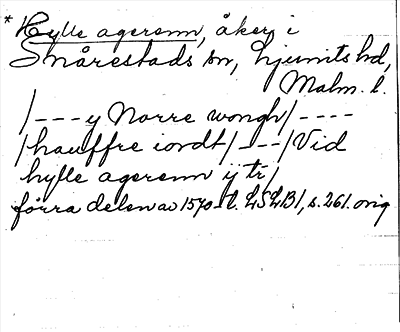 * Hylle agerenn, åker i
Snårestads sn, Ljunits hd,
Malm. l.
/---y Norre wongh/----
/hauffre iordt/---/Vid
hylle agerenn ÿ tr/
förra delen av 1570-t. LSLB1, s. 261. orig